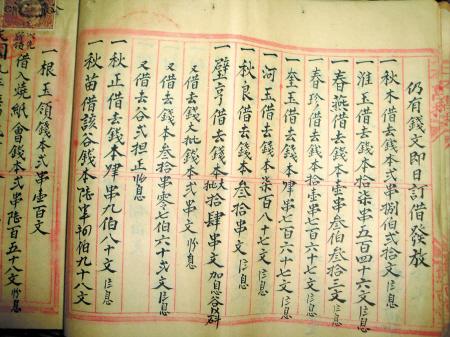 仍有錢文即日訂借發放
一秋木借去錢本弍串捌伯弍拾文 行息
一淮玉借去錢本拾柒串五百四十六文 行息
一春燕借去錢本壹串叁伯叁拾三文 行息
一春珍借去錢本拾壹串七百六十七文 行息
一奎玉借去錢本肆串七百六十七文 行息
一河玉借去錢本柒百八十七文 行息
一秋良借去錢本叁拾串文 行息
一璧亨借去錢本拾肆串文 加息谷
又借去錢大批錢本弍串文 行息
又借去錢本叁拾串零七佰六十弍文 行息
又借去谷弍担正 行息
一秋正借去錢本肆串九伯八十文 行息
一秋苗借該谷錢本陸串捌伯九十八文
一根玉領錢本弍串壹百文
借入燒紙會錢本弍串陸百五十八文 行息